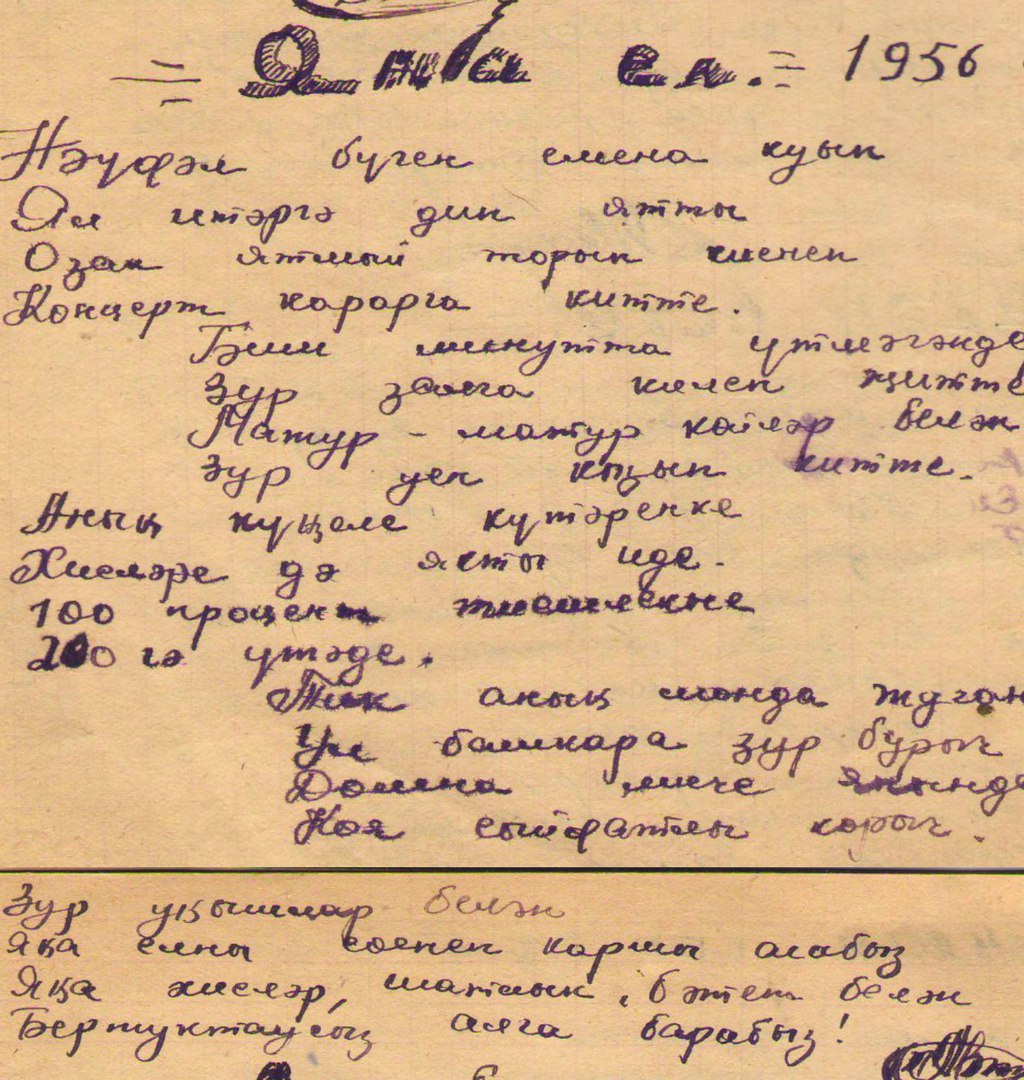 = Яңа ел. = 1956
Нәүфәл бүген смена куып
Ял итәргә дип ятты
Озак ятмый торып киенеп
Концерт карарга китте.
Биш минутта үтмәгәнде
Зур залга килеп җитте
Матур - матур көйләр белән
Зур уен кызып китте.
Аның күңеле күтәренке
Хисләре дә якты иде.
100 процент
200 гә үтәде.
Тик аның монда туган
Ул башкара зур бурыч
Домна миче янында
Коя сыйфатлы корыч.
Зур уңышлар белән
Яңа елны сөенеп каршы алабыз
Яңа хисләр, шатлык, бәхет белән
Бертуктаусыз алга барабыз!